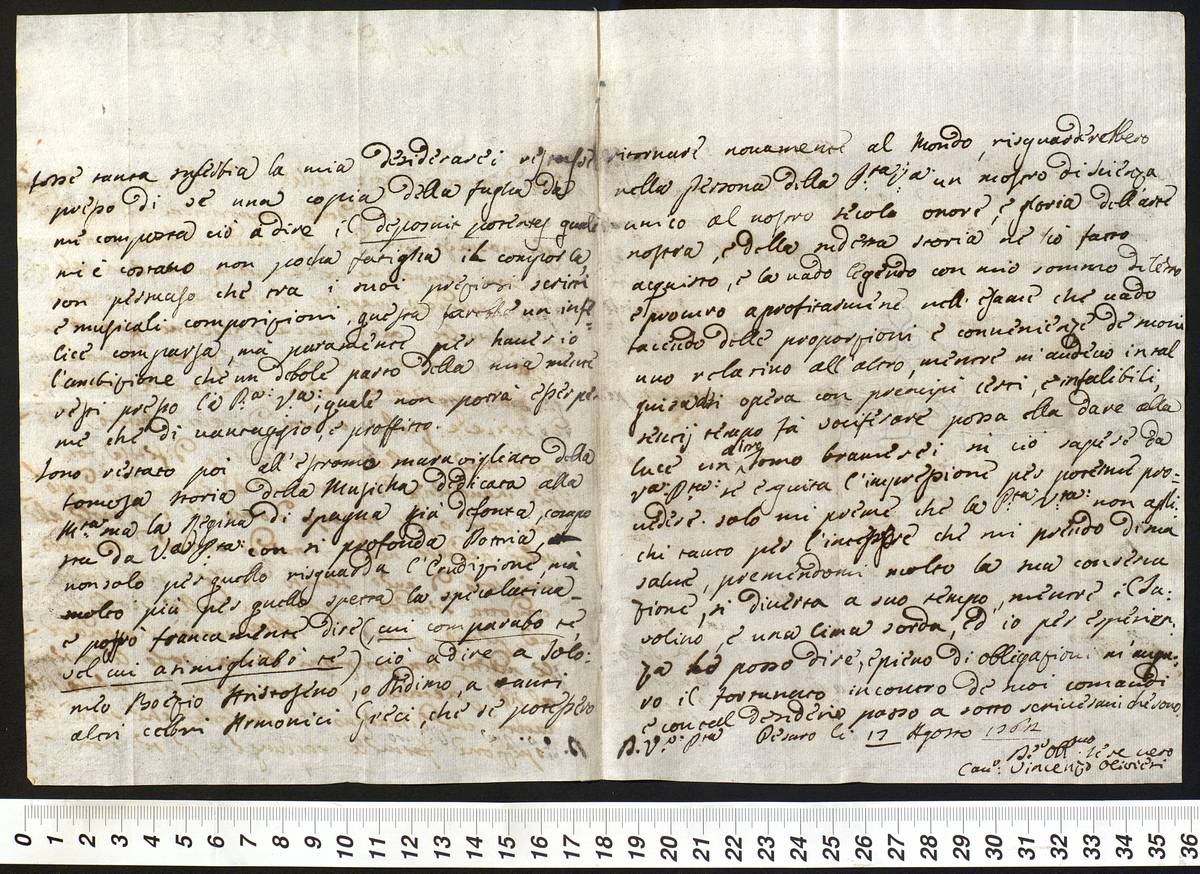 fosse tanta insetibia la mia desiderarei
presso di se una copia della fuglia da
me composta ciò à dire il deposuit potentes quale
mi è costatto non pocha fatiglia il comporla
son persuaso che tra i suoi preziosi scritti
e musicali composizioni, questa farebbe un infe=
lice comparsa, mà puramente per haver io
l'ambizione che un debole parto della mia mente
resti presso le P.a V.a; quale non potrà esser per
me che di vantaggio, e proffitto.
Sono restato poi all'estremo maravigliato della
famosa storia della Musicha dedicata alla
M.tà ma la Regina di Spagna già defonta, compo
sta da V.a P.tà con sì profonda Dottrina,
non solo per quello risguarda l'Erudizione, mà
molto più per quello spetta la specolativa
e posso francamente dire (cui comparabo te,
vel cui asimigliabo te) ciò à dire a Tolo:
meo Boezio Aristoseno, o Didimo, a tanti
altri celebri Armonici Greci, che se potessero
ritornare novamente al Mondo, risguarderebbero
nella persona della P.tà V.a un mostro di scienza
unico al nostro secolo onore, e gloria dell'arte
nostra, e della sudetta storia ne hò fatto
acquisto, e la vado legendo con mio sommo diletto
e procuro aprofitarmene nell'esame che vado
facendo delle proporzioni e convenienze de moni
uno relativo all'altro, mentre m'audecò in tal
guisa di opera con principi certi, e infalibili,
tempo fà possa ella dare alla
luce un altro tomo bramerei in ciò sapere da
V.a P.tà se è quita l'impressione per potermi pro=
vedere. solo mi preme che la P.tà V.a non apli
chi tanto per l'interesse che mi prendo di sua
salute, premendomi molto la sua conserva
zione, si diverta a suo tempo, mentre il Ta:
volino, è una lima sorda, ed io per esperien
za lo posso dire, e pieno di obligazioni mi augu:
ro il fortunato incontro de suoi comandi
e con tal desiderio passo a sotto scrivermi che sono
D. V.a P.tà Pesaro li 17 Agosto 1764
D.mo Obb.mo Ser.e vero
Cau.o Vincenzo Olivieri